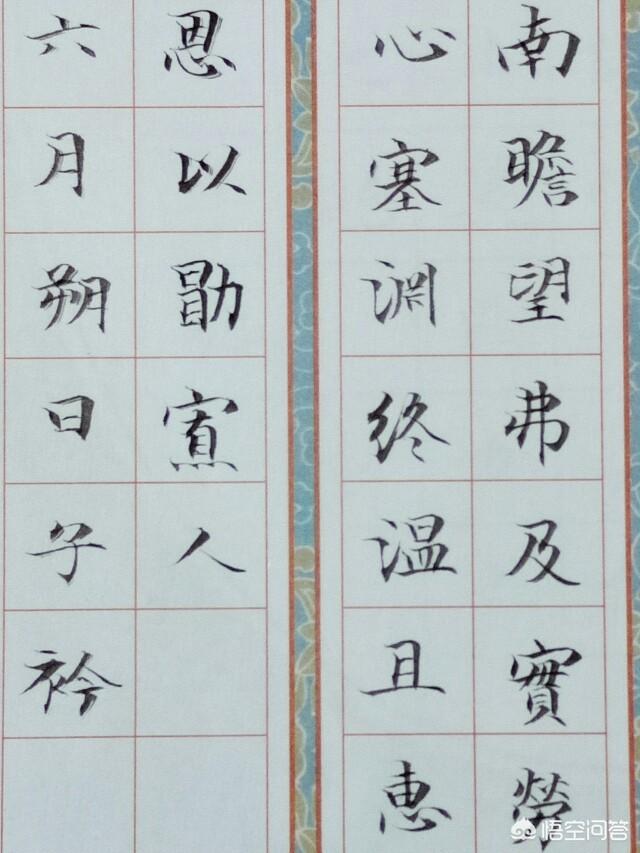 南瞻望弗及實勞
心塞渊終温且惠
思以勖寡人
六月朔日子衿
悟空问答